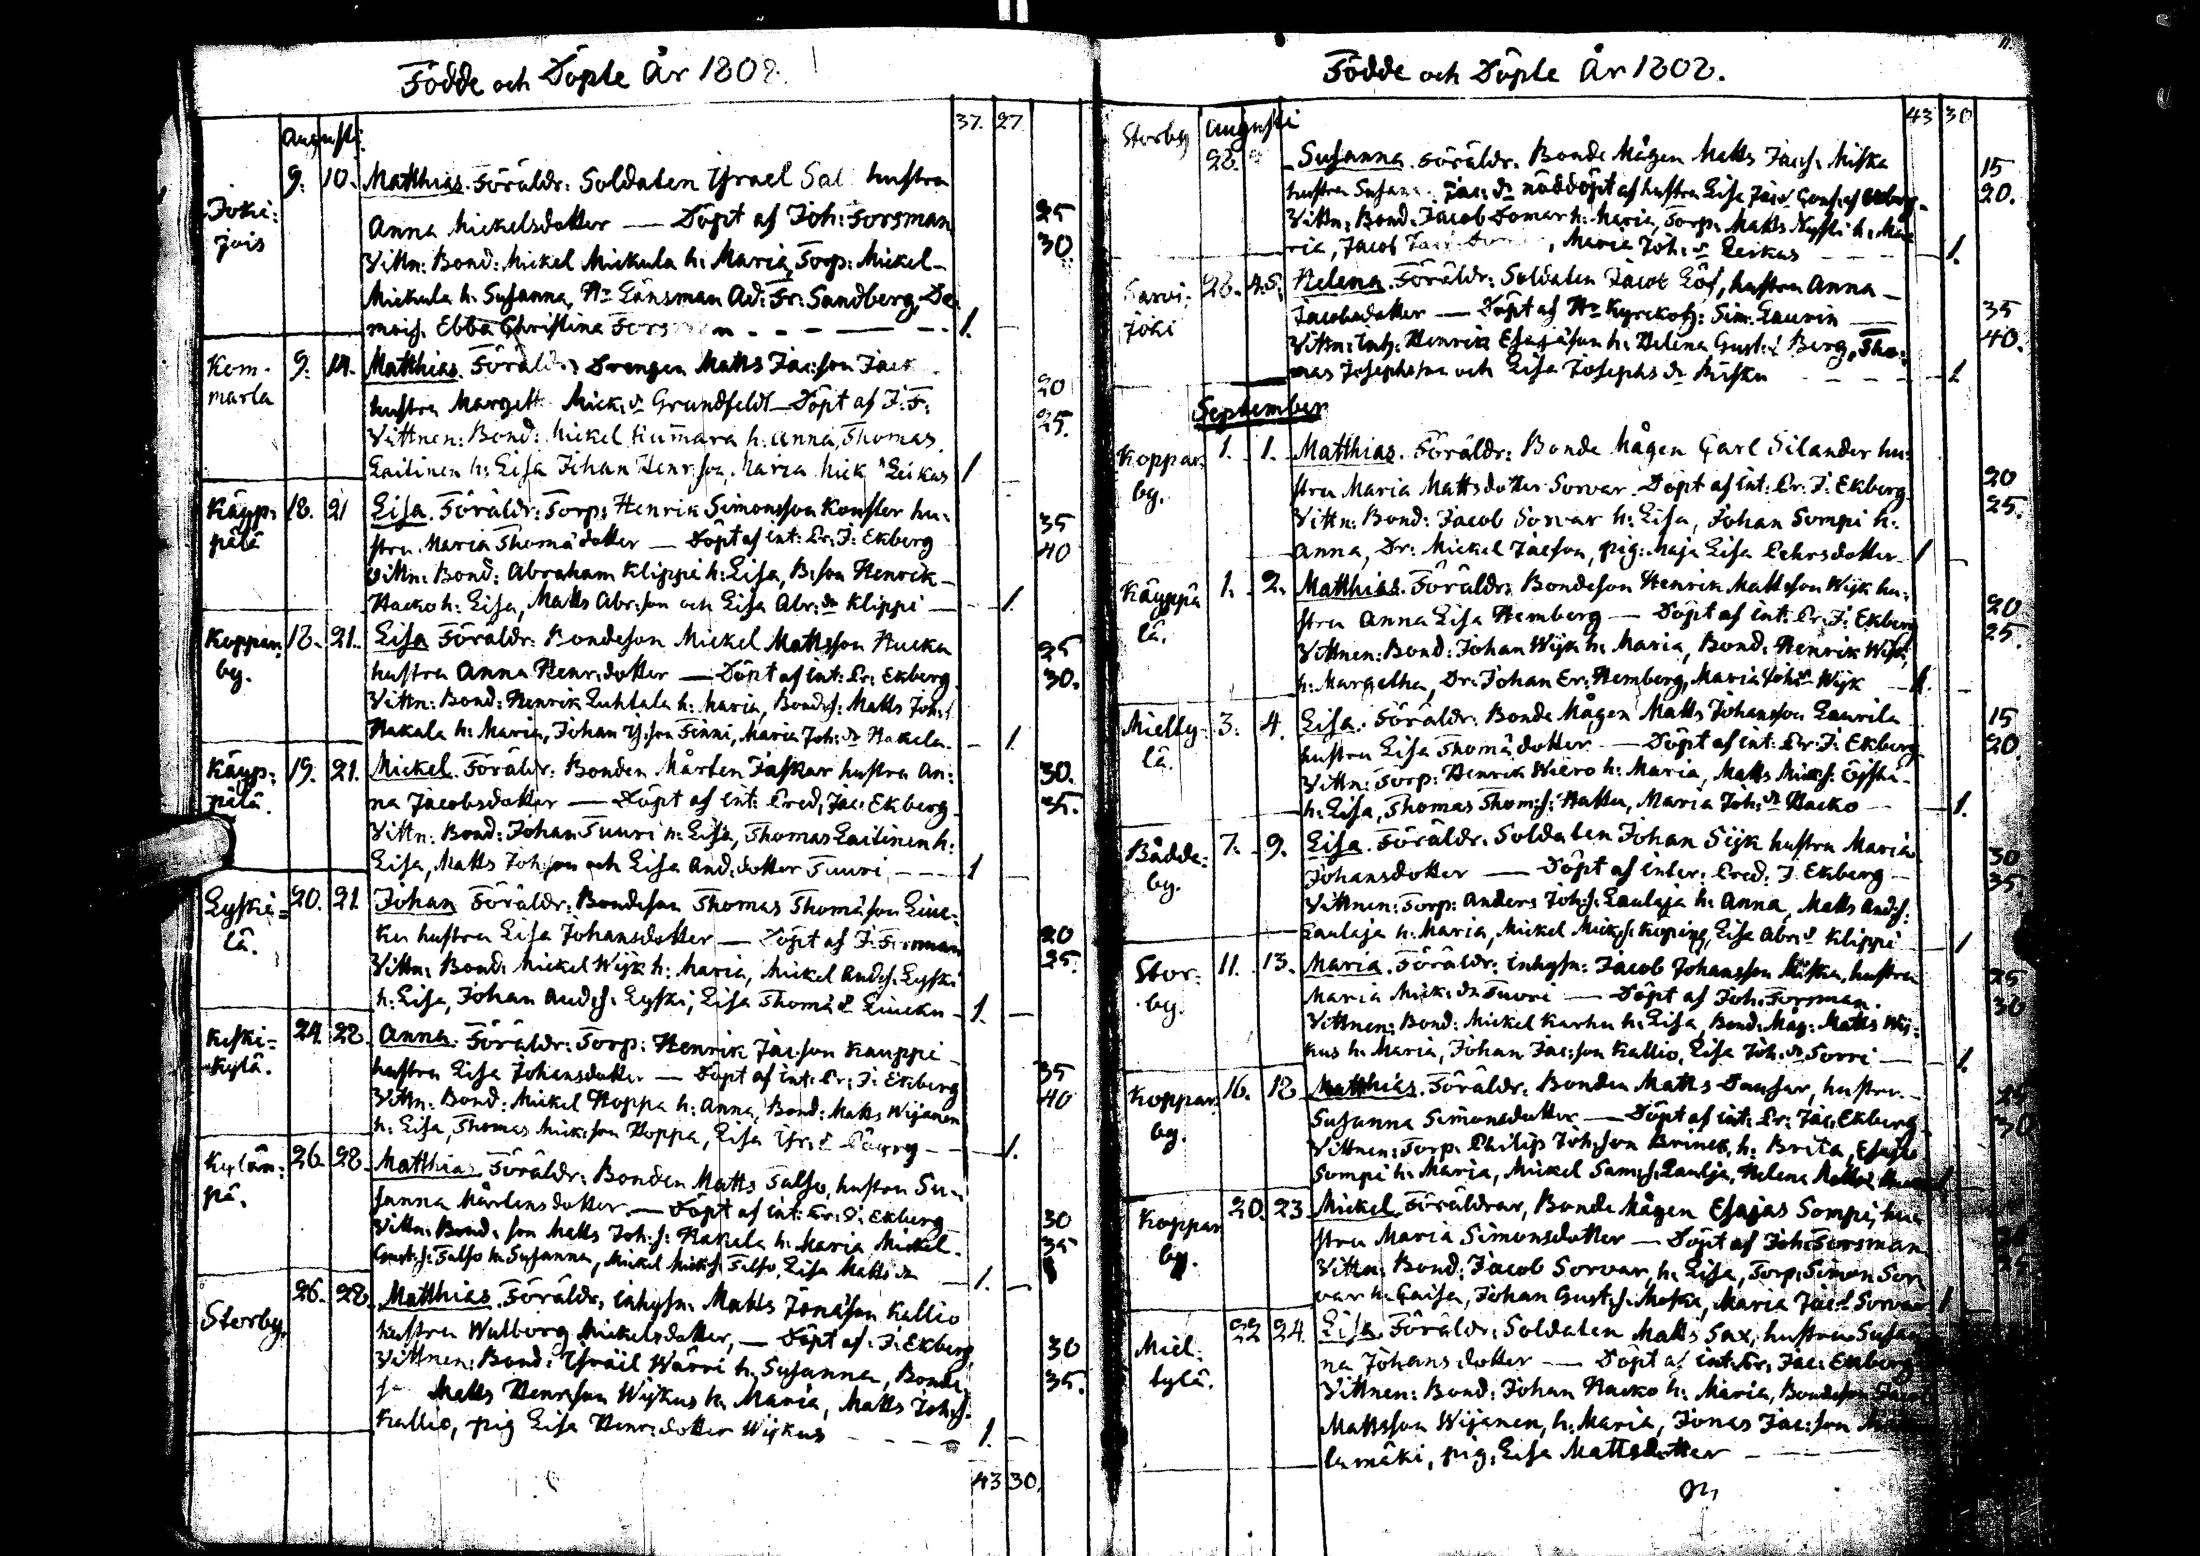 Födde och Döpte År 1808.
37. 27
Augusti
Joki=
jois
9. 10. Matthias. Föräldr: Soldaten Israel Sal hustru
Anna Mickelsdotter — Döpt af Joh: Forsman 25
Vittn: Bond: Mickel Mickula h: Maria, Torp: Mickel 30
Mickula h: Susanna, Hr Länsman Ad: Fr: Sandberg, De
mois. Ebba Christina 1.
Kom-
marla
9. 14. Matthias. Föräldr: Drengen Matts Jac:son
hustru Margett Mick: dr Grundfeldt — Döpt af J: F: 20
Vittnen: Bond: Mickel Kum̄ara h: Anna, Thomas 25.
Lailinen h: Lisa Johan Henr:son, Maria Mick Leikus 1
Käyp=
pälä
18. 21 Lisa. Föräldr: Torp: Henrik Simonsson Konster hu- 35
stru Maria Thomädotter — Döpt af int: Pr: J: Ekberg 40
Vittn: Bond: Abraham Klippi h: Lisa, B:son Henrik
Hacko h: Lisa, Matts Abr:son och Lisa Abr: dr Klippi — 1.
Koppar
by.
18. 21. Lisa Föräldr: Bondeson Mickel Mattsson Hucka 25
hustru Anna Henr:dotter — Döpt af int: Pr: Ekberg 30.
Vittn: Bond: Henrik Luhtala h: Maria, Bond:s: Matts Joh:s
Hakala h: Maria, Johan Is:son Finni, Maria Joh: dr Hakala. — 1.
Käyp=
pälä.
19. 21. Mickel. Föräldr: Bonden Mårten Jaskar hustru An= 30.
na Jacobsdotter — Döpt af int: Pred: Jac: Ekberg 35.
Vittn: Bond: Johan Tuuri h: Lisa, Thomas Lailinen h:
Lisa, Matts Joh:son och Lisa And:dotter Tuuri — 1
Lyski=
lä.
20. 21. Johan Föräldr: Bondeson Thomas Thomäson Liuc=
ku hustru Lisa Johansdotter — Döpt af J: Forsman 20
Vittn: Bond: Mickel Wijk h: Maria, Mickel And:s: Lyski 25.
h: Lisa, Johan And:s: Lyski, Lisa Thomä d Liucku — 1.
Keski=
kylä.
24. 28. Anna. Föräldr: Torp: Henrik Jac:son Kauppi
hustru Lisa Johansdotter — Döpt af int: Pr: J: Ekberg 35
Vittn: Bond: Mickel Hoppa h: Anna, Bond: Matts Wijanen 40
h: Lisa, Thomas Mick:son Hoppa, Lisa Isr: d — 1.
Kylän=
pä.
26. 28. Matthias. Föräldr: Bonden Matts Talso, hustru Su=
sanna Mårtensdotter — Döpt af int: Pr: J: Ekberg 30
Vittn: Bond:son Matts Joh:s: Hakala h: Maria Mickel 35
Talso h: Susanna, Mickel Mick:s: Talso, Lisa Matts dr — 1.
Storby.
26. 28. Matthias. Föräldr: inhysn: Matts Jonäson Kallio
hustru Walborg Mickelsdotter, — Döpt af: J: Ekberg 30
Vittnen: Bond: Israil Wärri h: Susanna, Bonde 35.
Matts Henr:son Wijkus h: Maria, Matts Joh:s.
Kallio, pig Lisa Henr:dotter Wijkus — 1.
43 30.
Födde och Döpte År 1808.
43 30
Storby Augusti
28. Susanna. Föräldr: Bonde Mågen Matts Jac:s: Niska 15
hustru Susana Jac: dr nöddöpt af hustru Lisa 20.
Vittn: Bond: Jacob Domar h: Maria, Torp: Matts h: Ma
ria, Jacob , Maria Joh: dr Leikas 1.
Sarvi=
joki
28. Helena. Föräldr: Soldaten Jacob Löf, hustru Anna
Jacobsdotter — Döpt af Hr Kyrckoh: Sim: Laurin 35
Vittn: inh: Henrik Esajäson h: Helena Gust: d Berg, Tho= 40.
mas Josephsson och Lisa Josephs dr — 1
September
Koppar
by.
1. 1. Matthias. Föräldr: Bonde Mågen Carl Silander hu=
stru Maria Mattsdotter Sorvar. Döpt af int: Pr: J: Ekberg 20
Vittn: Bond: Jacob Sorvar h: Lisa, Johan Sompi h: 25.
Anna, Dr: Mickel Jacson, pig: Maja Lisa Pehrsdotter — 1
Käyppä
lä.
1. 2. Matthias. Föräldr: Bondeson Henrik Mattsson Wijk hu=
stru Anna Lisa Hemberg — Döpt af int: Pr: J: Ekberg 20
Vittnen: Bond: Johan Wijk h: Maria, Bond: Henrik Wijk 25.
h: Margetha, Dr: Johan Er: Hemberg, Maria Joh: d Wijk — 1.
Mielty=
lä.
3. 4. Lisa. Föräldr: Bonde Mågen Matts Johansson Laurila 15
hustru Lisa Thomädotter — Döpt af int: Pr: J: Ekberg 20.
Vittn: Torp: Henrik Wiero h: Maria, Matts Mick:s:
h: Lisa, Thomas Thom:s: Hattu, Maria Joh: dr Hacko — 1.
Bådde=
by.
7. 9. Lisa. Föräldr: Soldaten Johan Sijk hustru Maria
Johansdotter — Döpt af inter: Pred: J Ekberg 30
Vittnen: Torp: Anders Joh:s: Laulaja h: Anna, Matts And:s: 35
Laulaja h: Maria, Mickel Mick:s: Koping, Lisa Abr: d Klippi 1
Stor=
by.
11. 13. Maria. Föräldr: inhysn: Jacob Johansson Niska, hustru 25
Maria Mick: dr Tuori — Döpt af Joh: Forsman. 30
Vittnen: Bond: Mickel Karhu h: Lisa, Bond: Måg: Matts Wij=
kus h: Maria, Johan Jac:son Kallio, Lisa Joh: dr Sorri — 1.
Koppar
by.
16. 18 Matthias. Föräldr: Bonden Matts Dansar, hustru 25
Susanna Simonsdotter — Döpt af int: Pr: Jac: Ekberg 30
Vittnen: Torp: Philip Joh:son Brinck, h: Brita, Esajas
Sompi h: Maria, Mickel Sam:s: Laulja, Helena 1
Koppar
by.
20. 23. Mickel. Föräldrar, Bonde Mågen Esajas Sompi, hu
stru Maria Simonsdotter — Döpt af Joh: Forsman 20
Vittn: Bond: Jacob Sorvar, h: Lisa, Torp: Simon Sor 25
var h: Caisa, Johan Gust:s: , Maria Jac: d Sorvar 1
Miel=
tylä.
22 24. Lisa. Föräldr: Soldaten Matts Sax, hustru Susan
na Johansdotter — Döpt af int: Pr: Jac: Ekberg
Vittnen: Bond: Johan Hacko h: Maria, Bondeson Jacob
Mattsson Wijanen, h: Maria, Jonas Jac:son
lamäki, pig, Lisa Mattsdotter —